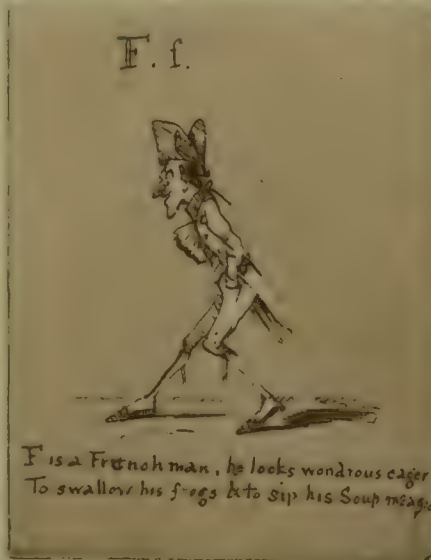 F. f.
F is a Frenchman, he looks wondrous eager
To swallow his frogs & to sip his Soup meagre